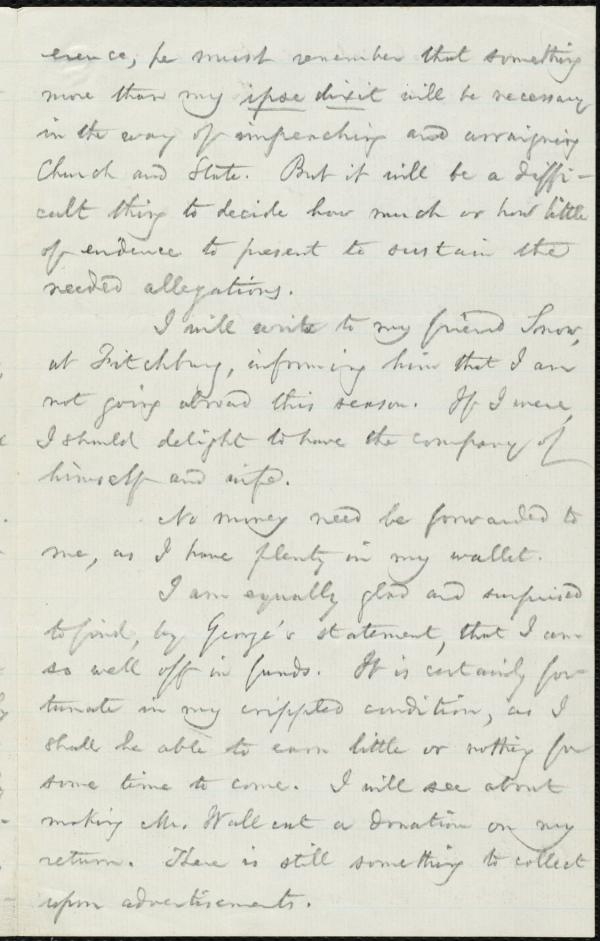 erence, he must remember that something
more than my ipse dixit will be necessary
in the way of impeaching and arraigning
Church and State. But it will be a diffi-
cult thing to decide how much or how little
of evidence to present to sustain the
needed allegations.
I will write to my friend Snow,
at Fitchburg, informing him that I am
not going abroad this season. If I were,
I should delight to have the company of
himself and wife.
No money need be forwarded to
me, as I have plenty in my wallet.
I am equally glad and surprised
to find, by George's statement, that I am
so well off in funds. It is certainly for-
tunate in my crippled condition, as I
shall be able to earn little or nothing for
some time to come. I will see about
making Mr. Wallcut a donation on my
return. There is still something to collect
upon advertisements.